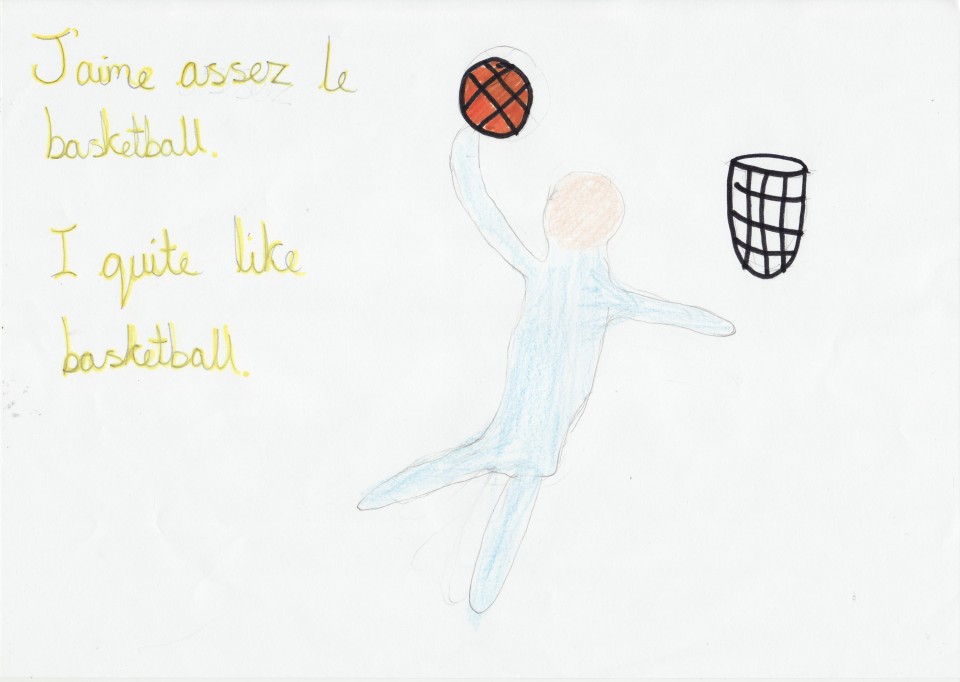 J'aime assez le
basketball.
I quite like
basketball.